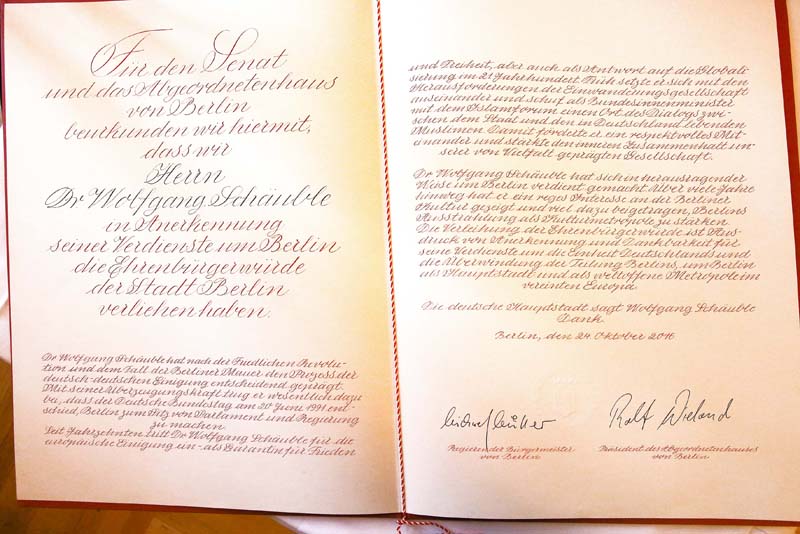 Für den Senat
und das Abgeordnetenhaus
von Berlin
beurkunden wir hiermit,
dass wir
Herrn
Dr Wolfgang Schäuble
in Anerkennung
seiner Verdienste um Berlin
die Ehrenbürgerwürde
der Stadt Berlin
verliehen haben.
Dr Wolfgang Schäuble hat nach der Friedlichen Revolu-
tion und dem Fall der Berliner Mauer den Prozess der
deutsch-deutschen Einigung entscheidend geprägt.
Mit seiner Überzeugungskraft trug er wesentlich dazu
bei, dass der Deutsche Bundestag am 20 Juni 1991 ent-
schied, Berlin zum Sitz von Parlament und Regierung
zu machen.
Seit Jahrzehnten tritt Dr Wolfgang Schäuble für die
europäische Einigung ein - als Garantin für Frieden
und Freiheit, aber auch als Antwort auf die Globali
sierung im 21 Jahrhundert. Früh setzte er sich mit den
Herausforderungen der Einwanderungsgesellschaft
auseinander und schuf als Bundesinnenminister
mit dem Islamforum einen Ort des Dialogs zwi-
schen dem Staat und den in Deutschland lebenden
Muslimen. Damit förderte er ein respektvolles Mit-
einander und stärkte den inneren Zusammenhalt un-
serer von Vielfalt geprägten Gesellschaft.
Dr Wolfgang Schäuble hat sich in herausragender
Weise um Berlin verdient gemacht. Über viele Jahre
hinweg hat er ein reges Interesse an der Berliner
Kultur gezeigt und viel dazu beigetragen, Berlins
Ausstrahlung als Kulturmetropole zu stärken.
Die Verleihung der Ehrenbürgerwürde ist Aus-
druck von Anerkennung und Dankbarkeit für
seine Verdienste um die Einheit Deutschlands und
die Überwindung der Teilung Berlins, um Berlin
als Hauptstadt und als weltoffene Metropole im
vereinten Europa
Die deutsche Hauptstadt sagt Wolfgang Schäuble
Dank.
Berlin, den 24. Oktober 2016
Ralf Wieland
Regierender Bürgermeister
von Berlin
Präsident des Abgeordnetenhauses
von Berlin